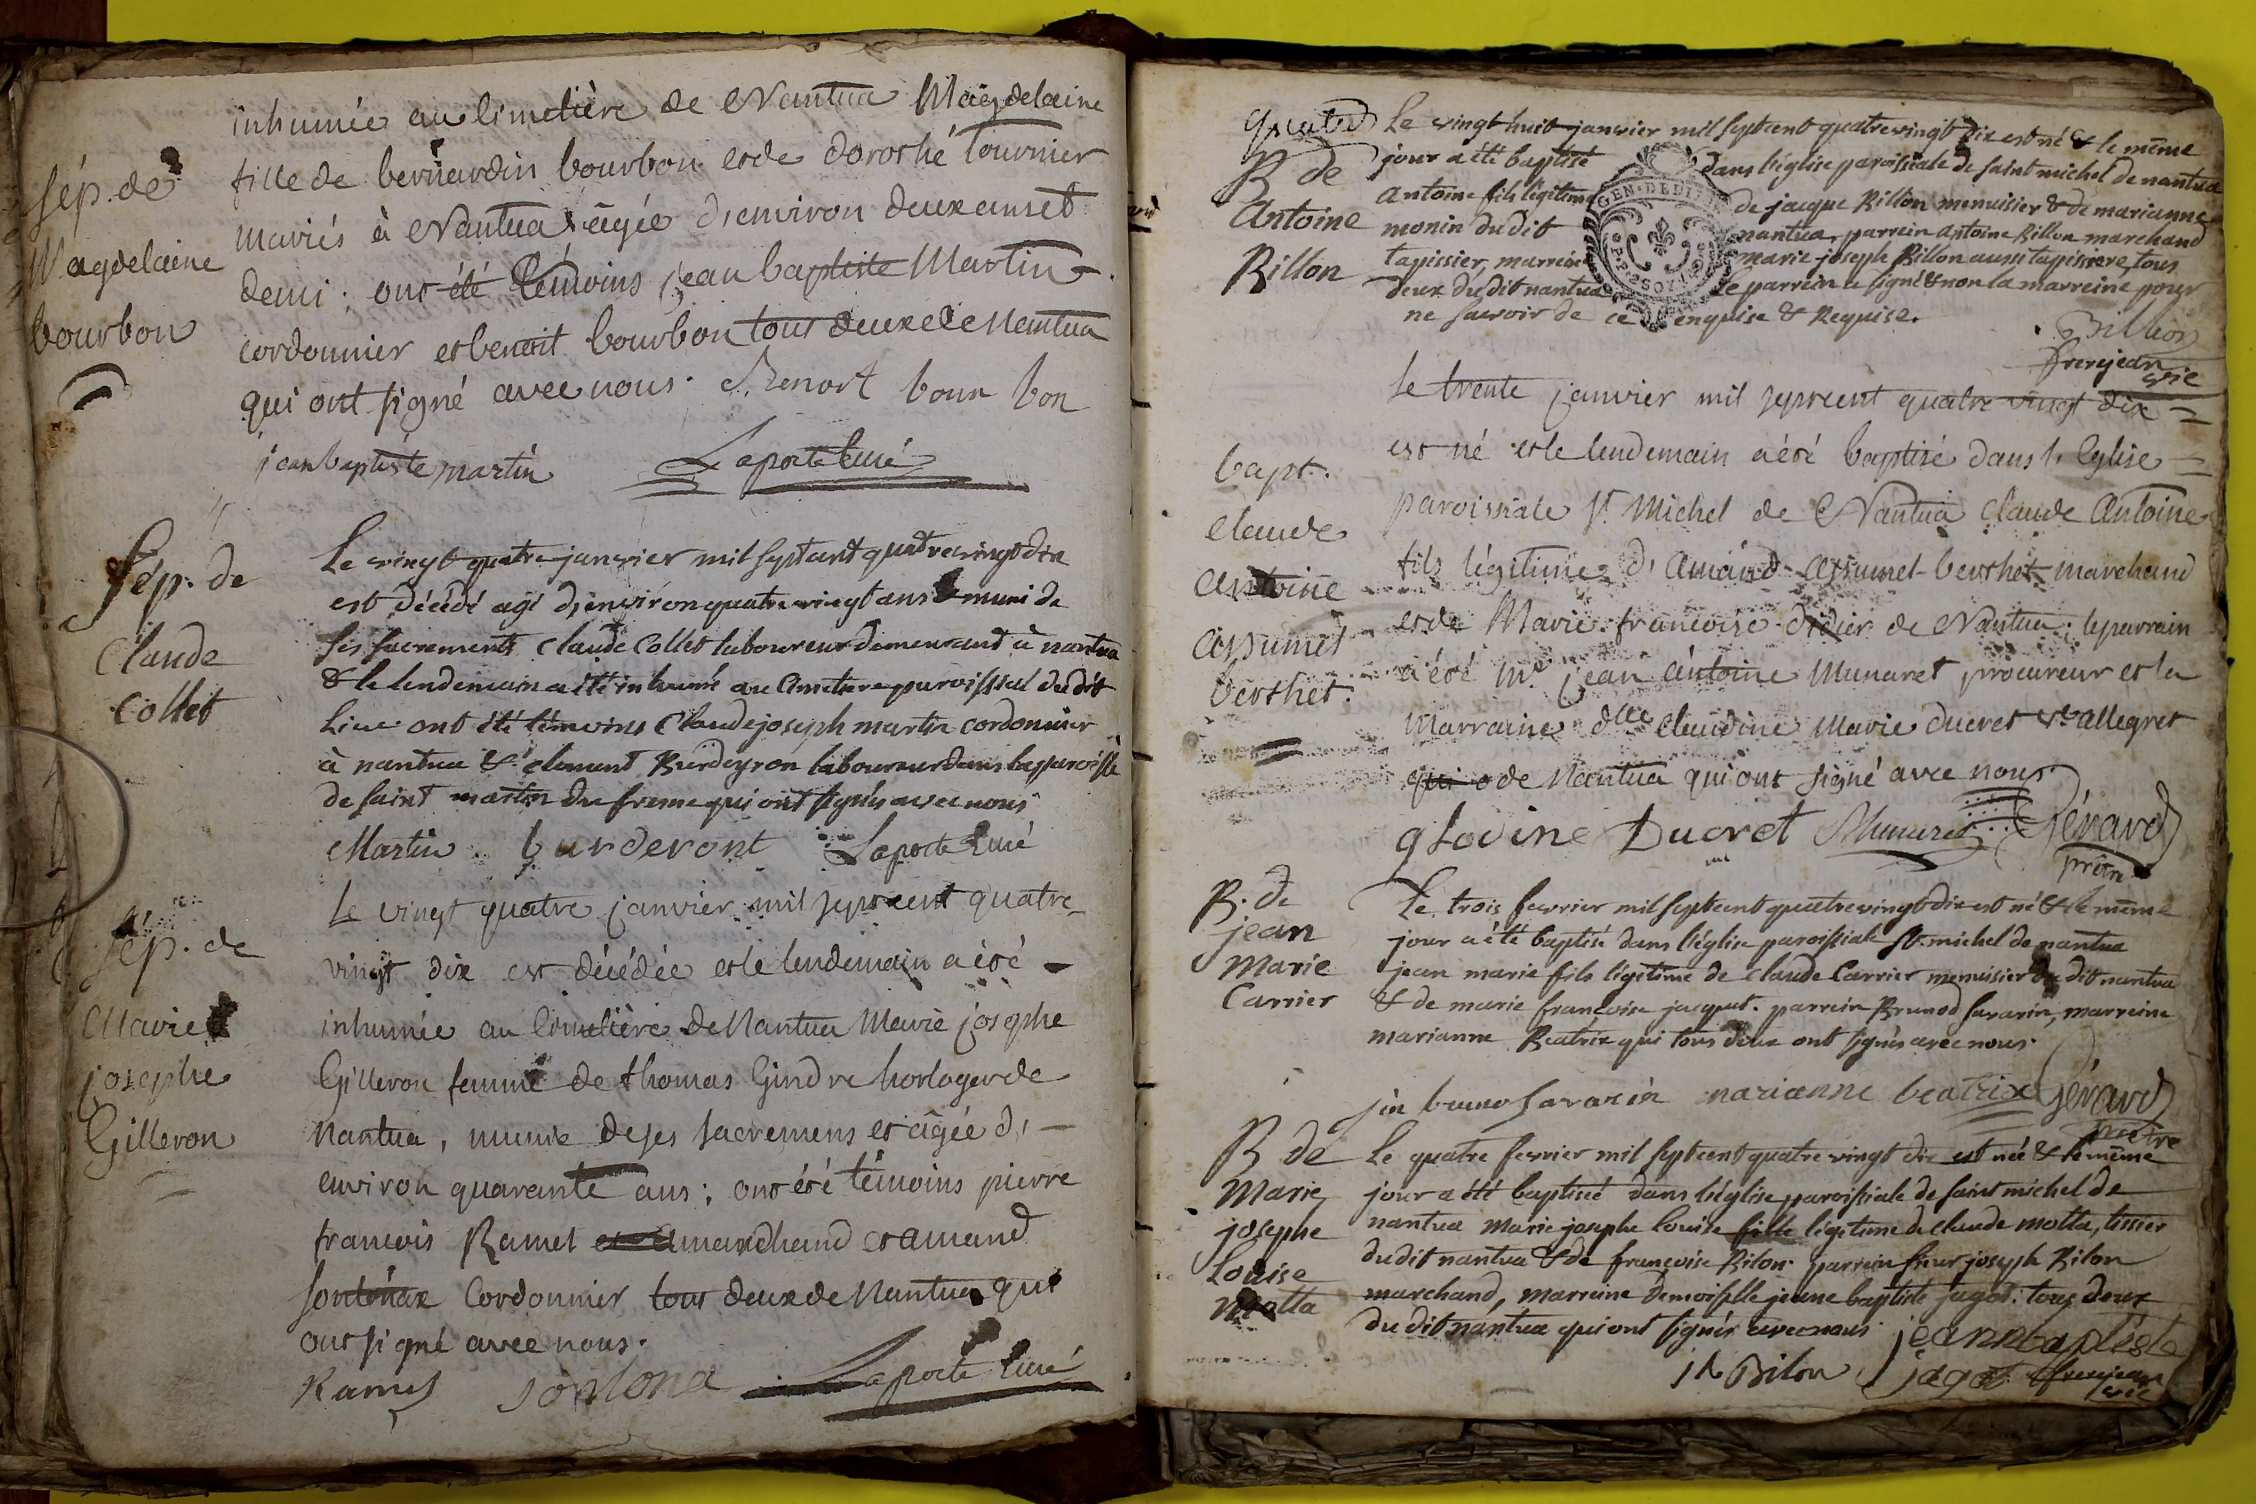 inhumée au Cimetière de Nantua Magdelaine
fille de bernardin bourbon et de dorothé tournier
Mariés à Nantua âgée d'environ deux ans et
demi. ont été témoins jean baptiste Martin
cordonnier et benoit bourbon tous deux de Nantua
qui ont signé avec nous. Benort bour bon
jean baptiste martin Laporte Curé
Sép. de
Magdelaine
bourbon
Sép. de
Claude
Collet
Le vingt quatre janvier mil sept cent quatre vingt dix
est décédé agé d'environ quatre vingt ans & muni de
ses sacrements Claude Collet laboureur demeurant à nantua
& le lendemain a été inhumé au Cimetiere paroissial du dit
Lieu ont été témoins Claude joseph martin cordonnier
à nantua & clement Burdeyron laboureur dans la paroisse
de saint martin du fresne qui ont signés avec nous
Martin. burderont Laporte Curé
Sép. de
Marie
josephe
Gilleron
Le vingt quatre janvier mil sept cent quatre
vingt dix est décédée et le lendemain a été
inhumée au Cimetière de Nantua Marie josephe
Gilleron femme de thomas Gindre horloger de
Nantua, munie de ses sacremens et âgée d'
environ quarante ans; ont été témoins pierre
francois Ramel marchand et amand
sontonax Cordonnier tous deux de Nantua qui
ont signé avec nous.
Ramel sontona Laporte Curé
B de
Antoine
Billon
Le vingt huit janvier mil sept cent quatre vingt dix est né & le même
jour a été baptisé dans l'église paroissiale de saint michel de nantua
Antoine fils légitime de jacque Billon menuisier & de marianne
monin du dit nantua, parrein Antoine Billon marchand
tapissier, marreine marie joseph Billon aussi tapissiere, tous
deux du dit nantua le parrein a signé & non la marreine pour
ne savoir de ce enquise & Requise.
Billion
frerejean
vic
GEN. DE DIJ
bapt.
Claude
Antoine
Assumet
berthet.
Le trente janvier mil sept cent quatre vingt dix
est né et le lendemain a été baptisé dans l'Eglise
paroissiale St Michel de Nantua Claude Antoine
fils légitime d'Amand Assumet-berthet marchand
et de Marie francoise didier de Nantua; le parrain
a été Me jean Antoine Munaret procureur et la
Marraine dlle Claudine Marie ducret ve allegret
qui de Nantua qui ont signé avec nous.
glodine Ducret Munaret Gérard
prêtre
B. de
jean
Marie
Carrier
Le trois fevrier mil sept cent quatre vingt dix est né & le même
jour a été baptisé dans l'église paroissiale St. michel de nantua
jean marie fils légitime de Claude Carrier menuisier du dit nantua
& de marie francoise jacquet. parrein Brunod savarin, marreine
marianne Beatrix qui tous deux ont signés avec nous.
jin bruno savarin marianne beatrix Gérard
prêtre
B de
Marie
josephe
Louise
Motta
Le quatre fevrier mil sept cent quatre vingt dix est née & le même
jour a été baptisée dans l'église paroissiale de saint michel de
nantua marie josephe louise fille légitime de claude motta, tissier
du dit nantua & de françoise Bilon. parrein sieur joseph Bilon
marchand, marreine demoiselle jeanne baptiste jagot: tous deux
du dit nantua qui ont signés avec nous
jeanne baptiste
jh Bilon jagot frerejean
vic